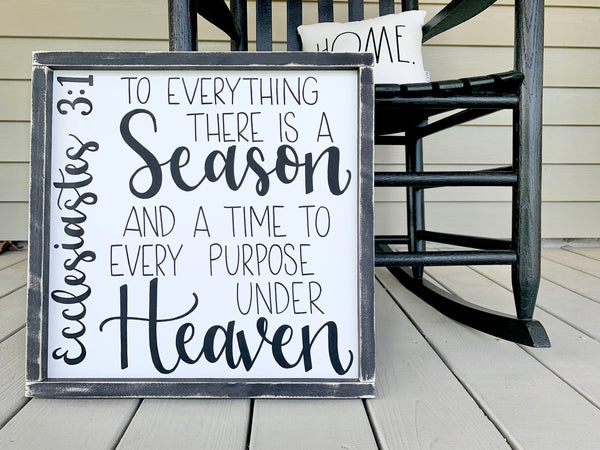 Ecclesiastes 3:1
TO EVERYTHING
THERE IS A
Season
AND A TIME TO
EVERY PURPOSE
UNDER
Heaven
HOME.